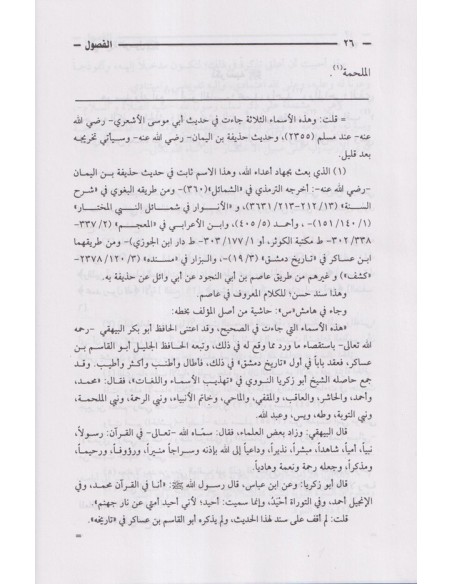 ٢٦ الفصول
الملحمة(١).
= قلت: وهذه الأسماء الثلاثة جاءت في حديث أبي موسى الأشعري- رضي الله
عنه- عند مسلم (٢٣٥٥)، وحديث حذيفة بن اليمان- رضي الله عنه- وسيأتي تخريجه
بعد قليل.
(١) الذي بعث بجهاد أعداء الله، وهذا الاسم ثابت في حديث حذيفة بن اليمان
-رضي الله عنه-: أخرجه الترمذي في «الشمائل»(٣٦٠)- ومن طريقه البغوي في «شرح
السنة» (١٣/ ٢١٢-٢١٣/ ٣٦٣١)، و «الأنوار في شمائل النبي المختار»
(١/ ١٤٠/ ١٥١)-، وأحمد (٥/ ٤٠٥)، وابن الأعرابي في «المعجم» (٢/ ٣٣٧-
٣٣٨/ ٣٠٢- ط مكتبة الكوثر، أو ١/ ١٧٧/ ٣٠٣- ط دار ابن الجوزي)- ومن طريقهما
ابن عساكر في «تاريخ دمشق» (٣/ ١٩)-، والبزار في «مسنده» (٣/ ١٢٠/ ٢٣٧٨-
«كشف») و غيرهم من طريق عاصم بن أبي النجود عن أبي وائل عن حذيفة به.
وهذا سند حسن؛ للكلام المعروف في عاصم.
وجاء في هامش«س»: حاشية من أصل المؤلف بخطه:
«هذه الأسماء التي جاءت في الصحيح، وقد اعتنى الحافظ أبو بكر البيهقي -رحمه
الله تعالى- باستقصاء ما ورد مما وقع له في ذلك، وتبعه الحافظ الجليل أبو القاسم بن
عساكر، فعقد باباً في أول «تاريخ دمشق» في ذلك، فأطال وأطنب وأكثر وأطيب. وقد
جمع حاصله الشيخ أبو زكريا النووي في «تهذيب الأسماء واللغات»، فقال: «محمد،
وأحمد، والحاشر، والعاقب، والمقفي، والماحي، وخاتم الأنبياء، ونبي الرحمة، ونبي الملحمة،
ونبي التوبة، وطه، ويس، وعبد الله.
قال البيهقي: وزاد بعض العلماء، فقال: سمّاه الله -تعالى- في القرآن: رسولاً،
نبياً، أمياً، شاهداً، مبشراً، نذيراً، وداعياً إلى الله بإذنه وسراجاً منيراً، ورؤوفاً، ورحيماً،
ومذكراً، وجعله رحمة ونعمة وهادياً.
قال أبو زكريا: وعن ابن عباس، قال رسول الله ﷺ: «أنا في القرآن محمد، وفي
الإنجيل أحمد، وفي التوراة أحْيَدُ، وإنما سميت: أحيد؛ لأني أحيد أمتي عن نار جهنم».
قلت: لم أقف على سند لهذا الحديث، ولم يذكره أبو القاسم بن عساكر في «تاريخه».
=